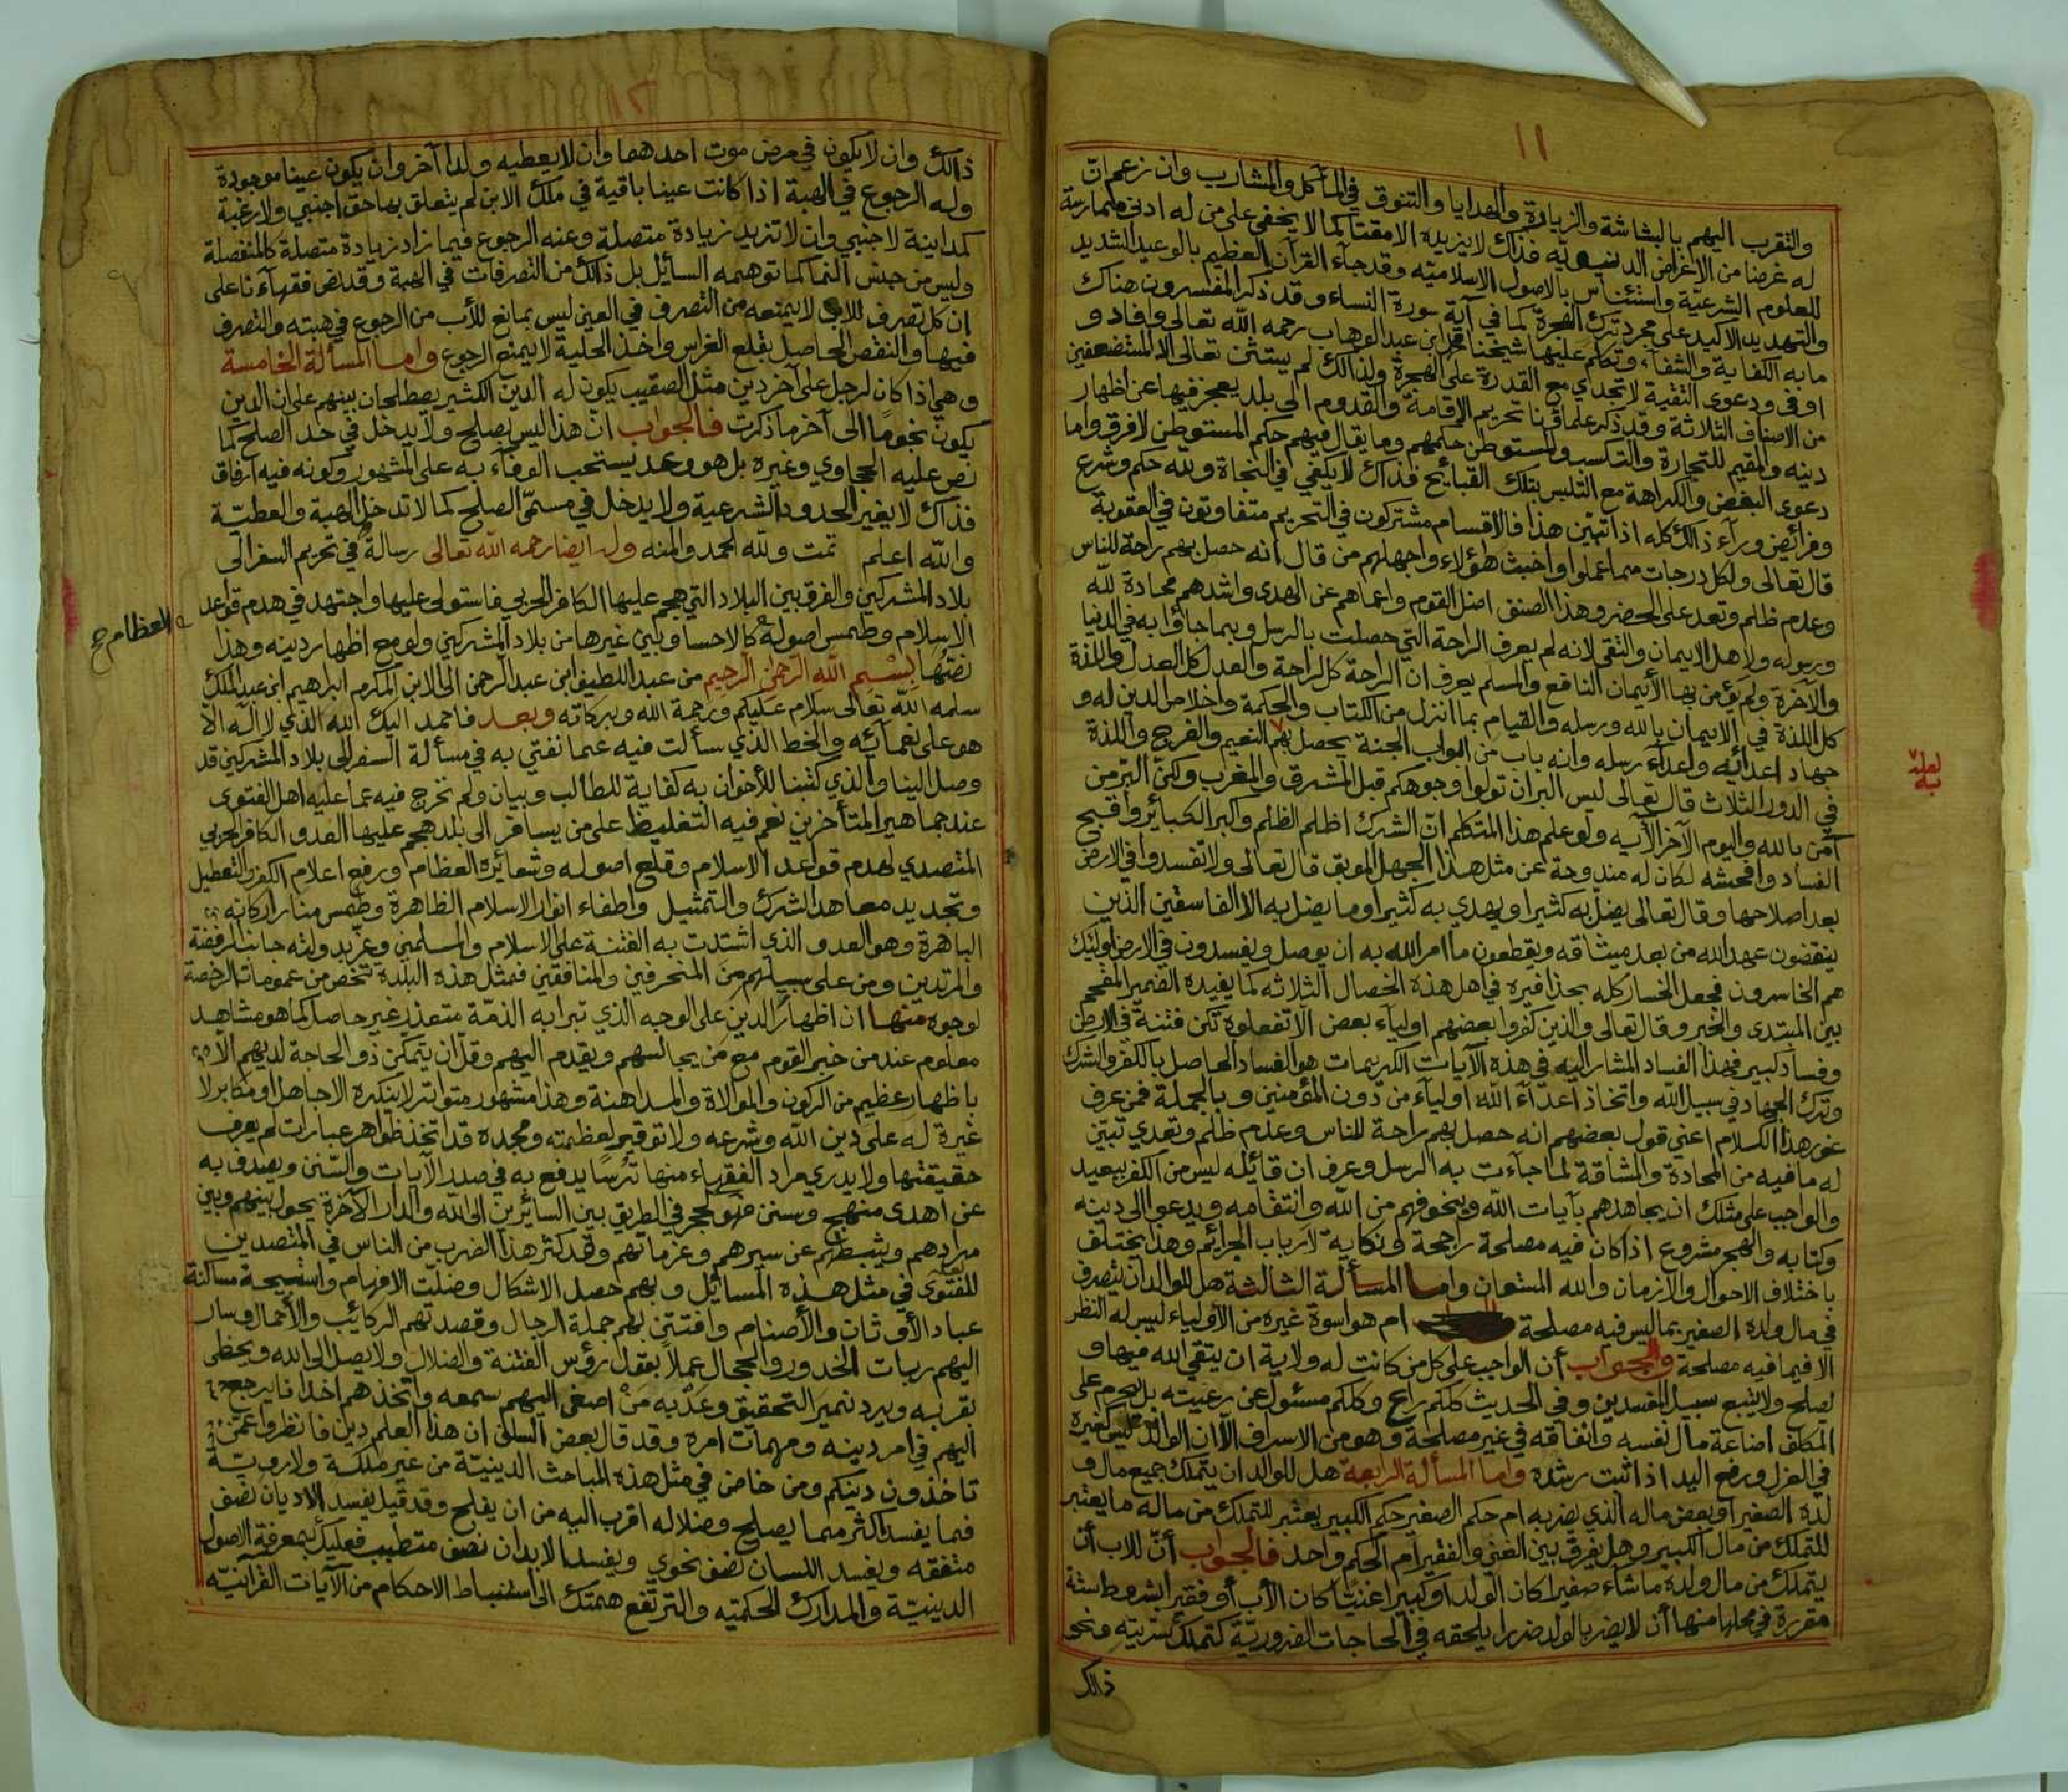 ١١
والتقرب اليهم بالبشاشة والزيارة والهدايا والتنوق في المآكل والمشارب وان زعم ان
له غرضا من الاغراض الدنيوية فذاك لا يزيده الا مقتا كما لا يخفى على من له ادنى ممارسة
للعلوم الشرعية واستئناس بالاصول الاسلاميه وقد جاء القرآن العظيم بالوعيد الشديد
والتهديد الاكيد على مجرد ترك الهجرة كما في آية سورة النساء وقد ذكر المفسرون هناك
ما به الكفاية والشفاء وتكلم عليها شيخنا محمد ابن عبد الوهاب رحمه الله تعالى وافاد و
اوفى ودعوى التقية لا تجدي مع القدرة على الهجرة ولذالك لم يستثن تعالى الا المستضعفين
من الاصناف الثلاثة وقد ذكر علماؤنا تحريم الاقامة والقدوم الى بلد يعجز فيها عن اظهار
دينه والمقيم للتجارة والتكسب والمستوطن حكمهم وما يقال فيهم حكم المستوطن لا فرق واما
دعوى البغض والكراهة مع التلبس بتلك القبائح فذاك لا يكفي في النجاة ولله حكم وشرع
وفرائض وراء ذالك كله اذا تبين هذا فالاقسام مشتركون في التحريم متفاوتون في العقوبة
قال تعالى ولكل درجات مما عملوا واخبث هؤلاء واجهلهم من قال انه حصل بهم راحة للناس
وعدم ظلم وتعد على الحضر وهذا الصنف اضل القوم واعماهم عن الهدى واشدهم محادة لله
ورسوله ولاهل الايمان والتقى لانه لم يعرف الراحة التي حصلت بالرسل وبما جاؤا به في الدنيا
والآخرة ولم يؤمن بها الأيمان النافع والمسلم يعرف ان الراحة كل الراحة والعدل كل العدل واللذة
كل اللذة في الايمان بالله ورسله والقيام بما انزل من الكتاب والحكمة واخلاص الدين له و
جهاد اعدائه واعداء رسله وانه باب من ابواب الجنة يحصل بهم النعيم والفرج واللذة
في الدور الثلاث قال تعالى ليس البر ان تولوا وجوهكم قبل المشرق والمغرب ولكن البر من
آمن بالله واليوم الآخر الآيه ولو علم هذا المتكلم ان الشرك اظلم الظلم واكبر الكبائر واقبح
الفساد وافحشه لكان له مندوحة عن مثل هذا الجهل الموبق قال تعالى ولا تفسدوا في الارض
بعد اصلاحها وقال تعالى يضل به كثيرا ويهدي به كثيرا وما يضل به الا الفاسقين الذين
ينقضون عهد الله من بعد ميثاقه ويقطعون ما امر الله به ان يوصل ويفسدون في الارض اولئك
هم الخاسرون فجعل الخسار كله بحذافيره في اهل هذه الخصال الثلاثه كما يفيده الضمير المقحم
بين المبتدى والخبر وقال تعالى والذين كفروا بعضهم اولياء بعض الا تفعلوه تكن فتنة في الارض
وفساد كبير فهذا الفساد المشار اليه في هذه الآيات الكريمات هو الفساد الحاصل بالكفر والشرك
وترك الجهاد في سبيل الله واتخاذ اعداء الله اولياء من دون المؤمنين وبالجملة فمن عرف
غور هذا الكلام اعني قول بعضهم انه حصل بهم راحة للناس وعدم ظلم وتعدي تبين
له ما فيه من المحادة والمشاقة لما جاءت به الرسل وعرف ان قائله ليس من الكفر ببعيد
والواجب على مثلك ان يجاهدهم بآيات الله ويخوفهم من الله وانتقامه ويدعوا الى دينه
وكتابه والهجر مشروع اذا كان فيه مصلحة راجحة ونكاية لأرباب الجرائم وهذا يختلف
باختلاف الاحوال والازمان والله المستعان واما المسألة الثالثة هل للوالد ان يتصرف
في مال ولده الصغير بما ليس فيه مصلحة ام هو اسوة غيره من الاولياء ليس له النظر
الا فيما فيه مصلحة والجواب أن الواجب على كل من كانت له ولاية ان يتقي الله فيها و
يصلح ولا يتبع سبيل المفسدين وفي الحديث كلكم راع وكلكم مسئول عن رعيته بل يحرم على
المكلف اضاعة مال نفسه وانفاقه في غير مصلحة وهو من الاسراف الا ان الوالد ليس كغيره
في العزل ورفع اليد اذا ثبت رشده واما المسألة الرابعة هل للوالد ان يتملك جميع مال و
لده الصغير او بعض ماله الذي يضر به ام حكم الصغير حكم الكبير يعتبر للتملك من ماله ما يعتبر
للتملك من مال الكبير وهل يفرق بين الغني والفقير ام الحكم واحد فالجواب أن للاب أن
يتملك من مال ولده ما شاء صغيرا كان الولد او كبيرا غنيا كان الأب أو فقيرا بشروط ستة
مقررة في محلها منها أن لا يضر بالولد ضررا يلحقه في الحاجات الضرورية كتملك سريته ونحو
ذالك
لعله
به
١٢
ذالك وان لا يكون في مرض موت احدهما وان لا يعطيه ولدا آخر وان يكون عينا موجودة
وله الرجوع في الهبة اذا كانت عينا باقية في ملك الابن لم يتعلق بها حق اجنبي ولا رغبة
كمداينة لاجنبي وان لا تزيد زيادة متصلة وعنه الرجوع فيما زاد زيادة متصلة كالمنفصلة
وليس من جنس النما كما توهمه السائل بل ذالك من التصرفات في الهبة وقد نص فقهاءنا على
ان كل تصرف للابن لا يمنعه من التصرف في العين ليس بمانع للأب من الرجوع في هبته والتصرف
فيها والنقص الحاصل بقلع الغراس واخذ الحلية لا يمنع الرجوع واما المسألة الخامسة
وهي اذا كان لرجل على آخر دين مثل الصقيب يكون له الدين الكثير يصطلحان بينهم على ان الدين
يكون نجوما الى آخر ما ذكرت فالجواب ان هذا ليس بصلح ولا يدخل في حد الصلح كما
نص عليه الحجاوي وغيره بل هو وعد يستحب الوفاء به على المشهور وكونه فيه ارفاق
فذاك لا يغير الحدود الشرعية ولا يدخل في مسمى الصلح كما لا تدخل الهبة والعطية
والله اعلم تمت ولله الحمد والمنه وله ايضا رحمه الله تعالى رسالة في تحريم السفر الى
بلاد المشركين والفرق بين البلاد التي هجم عليها الكافر الحربي فاستولى عليها واجتهد في هدم قواعد
الاسلام وطمس اصوله كالاحسا وبين غيرها من بلاد المشركين ولو مع اظهار دينه وهذا
العظام صح
نصها بسم الله الرحمن الرحيم من عبد اللطيف ابن عبد الرحمن الى الابن المكرم ابراهيم ابن عبد الملك
سلمه الله تعالى سلام عليكم ورحمة الله وبركاته وبعد فاحمد اليك الله الذي لا اله الا
هو على نعمائه والخط الذي سألت فيه عما نفتي به في مسألة السفر الى بلاد المشركين قد
وصل الينا والذي كتبنا للأخوان به كفاية للطالب وبيان ولم نخرج فيه عما عليه اهل الفتوى
عند جماهير المتأخرين نعم فيه التغليظ على من يسافر الى بلد هجم عليها العدو الكافر الحربي
المتصدي لهدم قواعد الاسلام وقلع اصوله وشعائره العظام ورفع اعلام الكفر والتعطيل
وتجديد معاهد الشرك والتمثيل واطفاء انوار الاسلام الظاهرة وطمس منار اركانه
الباهرة وهو العدو الذي اشتدت به الفتنة على الاسلام والمسلمين وعز بدولته جانب الرفضة
والمرتدين ومن على سبيلهم من المنحرفين والمنافقين فمثل هذه البلدة تخص من عمومات الرخصة
لوجوه منها ان اظهار الدين على الوجه الذي تبرا به الذمة متعذر غير حاصل كما هو مشاهد
معلوم عند من خبر القوم مع من يجالسهم ويقدم اليهم وقل ان يتمكن ذو الحاجة لديهم الا
باظهار عظيم من الركون والموالاة والمداهنة وهذا مشهور متواتر لا ينكره الا جاهل او مكابر لا
غيرة له على دين الله وشرعه ولا توقير لعظمته ومجده قد اتخذ ظواهر عبارات لم يعرف
حقيقتها ولا يدري مراد الفقهاء منها ترسا يدفع به في صدر الآيات والسنن ويصدف به
عن اهدى منهج وسنن فهو كحجر في الطريق بين السائرين الى الله والدار الآخرة يحول بينهم وبين
مرادهم ويثبطهم عن سيرهم وعزماتهم وقد كثر هذا الضرب من الناس في المتصدين
للفتوى في مثل هذه المسائل وبهم حصل الاشكال وضلت الافهام واستبيحة مساكنة
عباد الأوثان والأصنام وافتتن بهم جملة الرجال وقصدتهم الركائب والأحمال وسار
اليهم ربات الخدور والحجال عملا بقول رؤس الفتنة والضلال ولا يصل الى الله ويحظى
بقربه ويرد نمير التحقيق وعذبه من اصغى اليهم سمعه واتخذهم اخدانا يرجع
اليهم في امر دينه ومهمات امره وقد قال بعض السلف ان هذا العلم دين فانظروا عمن
تاخذون دينكم ومن خاض في مثل هذه المباحث الدينية من غير ملكة ولا روية
فما يفسد اكثر مما يصلح وضلاله اقرب اليه من ان يفلح وقد قيل يفسد الاديان نصف
متفقه ويفسد اللسان نصف نحوي ويفسد الابدان نصف متطبب فعليك بمعرفة الاصول
الدينية والمدارك الحكميه والترتفع همتك الى استنباط الاحكام من الآيات القرآنيه